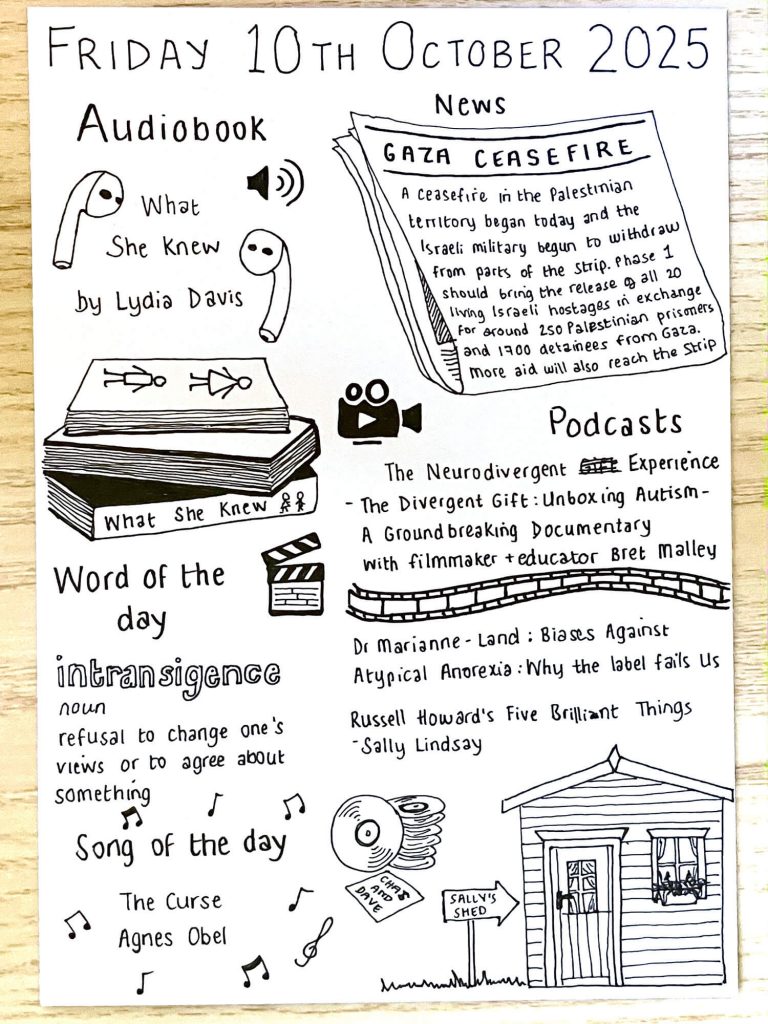 FRIDAY 10TH OCTOBER 2025
Audiobook
What
She Knew
by Lydia Davis
What She Knew
News
GAZA CEASEFIRE
A ceasefire in the Palestinian
territory began today and the
Israeli military begun to withdraw
from parts of the Strip. Phase 1
should bring the release of all 20
living Israeli hostages in exchange
for around 250 Palestinian prisoners
and 1700 detainees from Gaza.
More aid will also reach the Strip
Podcasts
The Neurodivergent Experience
- The Divergent Gift: Unboxing Autism -
A Groundbreaking Documentary
with filmmaker + educator Bret Malley
Dr Marianne-Land: Biases Against
Atypical Anorexia: Why the label fails Us
Russell Howard's Five Brilliant Things
- Sally Lindsay
Word of the
day
intransigence
noun
refusal to change one's
views or to agree about
something
Song of the day
The Curse
Agnes Obel
CHAS
AND
DAVE
SALLY'S
SHED